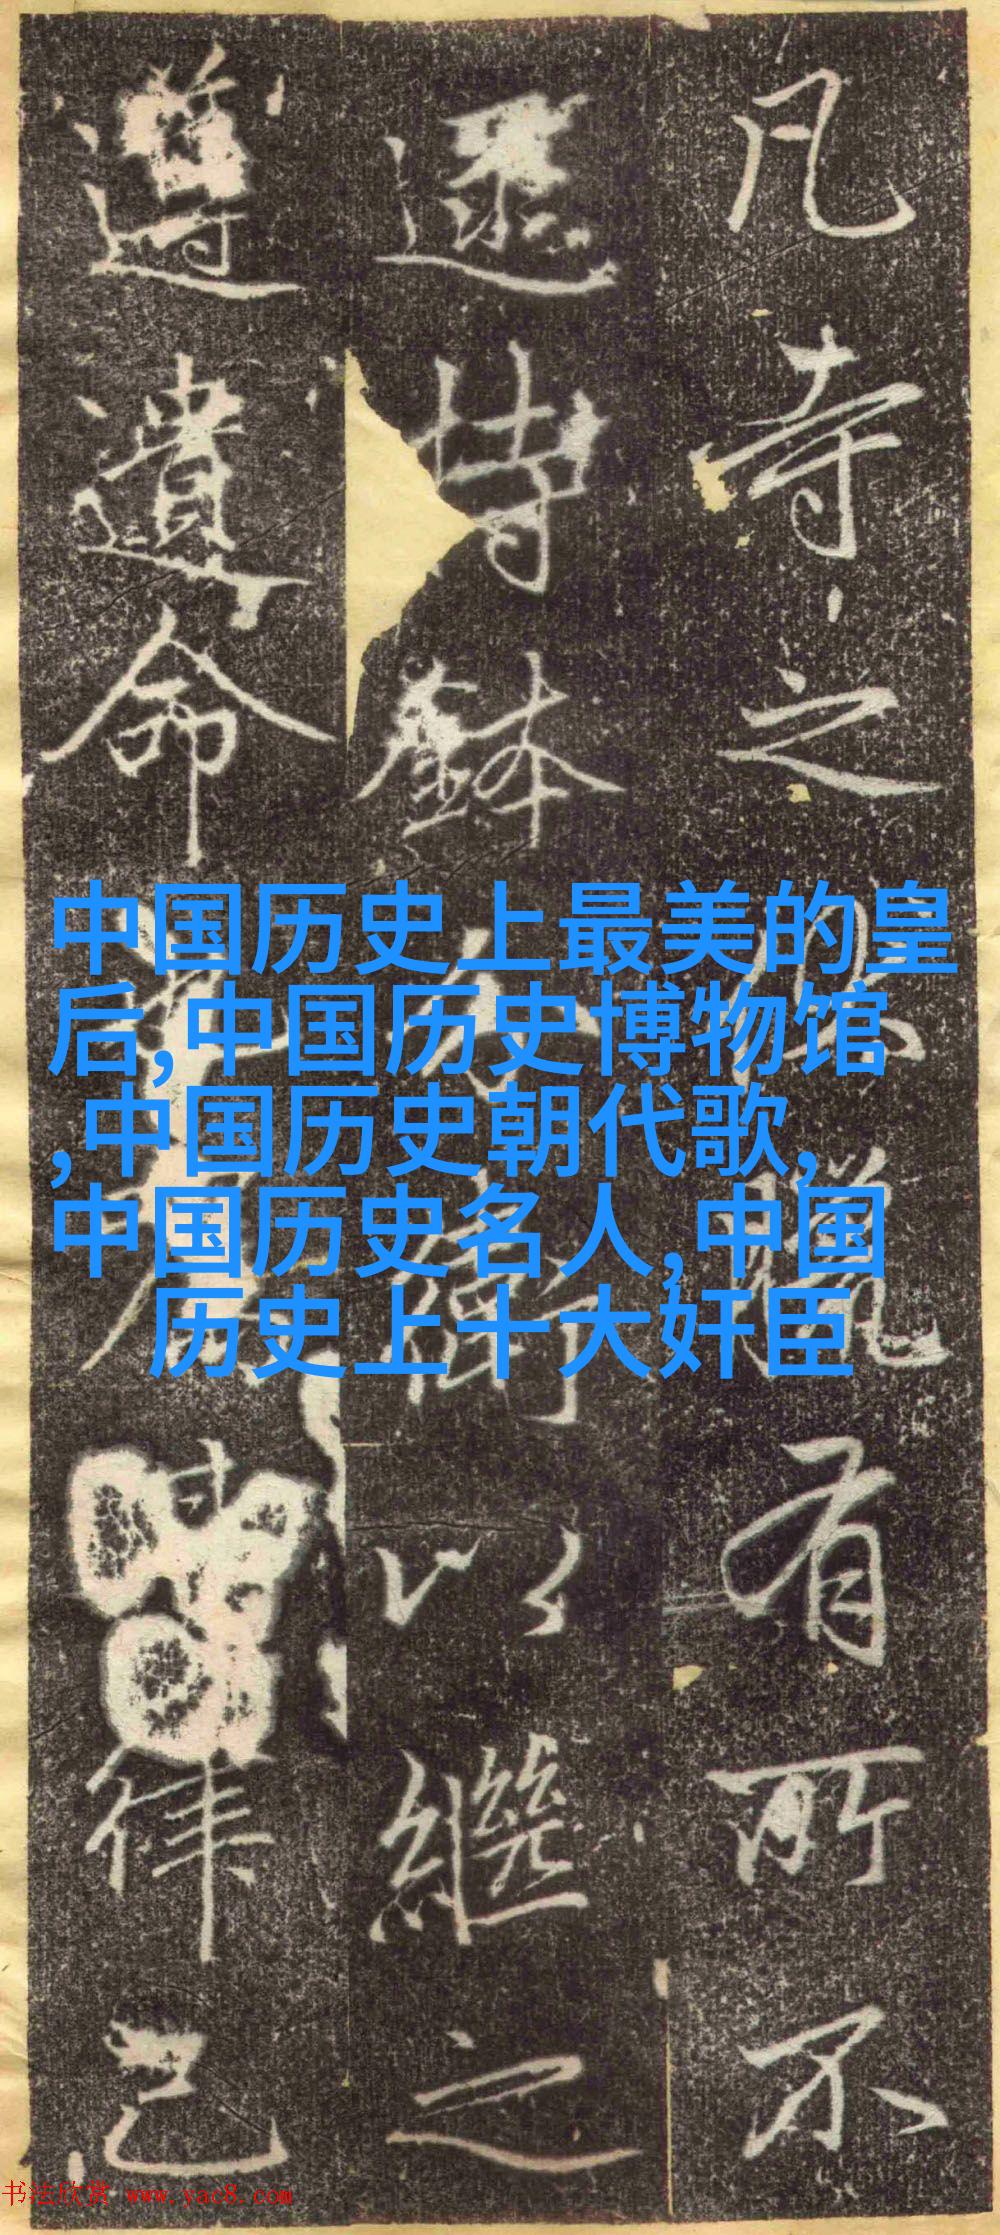 凡寺之
有所不
逮持鉢
以繼之
遵遺命
律己
中国历史上最美的皇
后,中国历史博物馆
,中国历史朝代歌,
中国历史名人,中国
历史上十大奸臣
书法欣赏 www.yac8.com